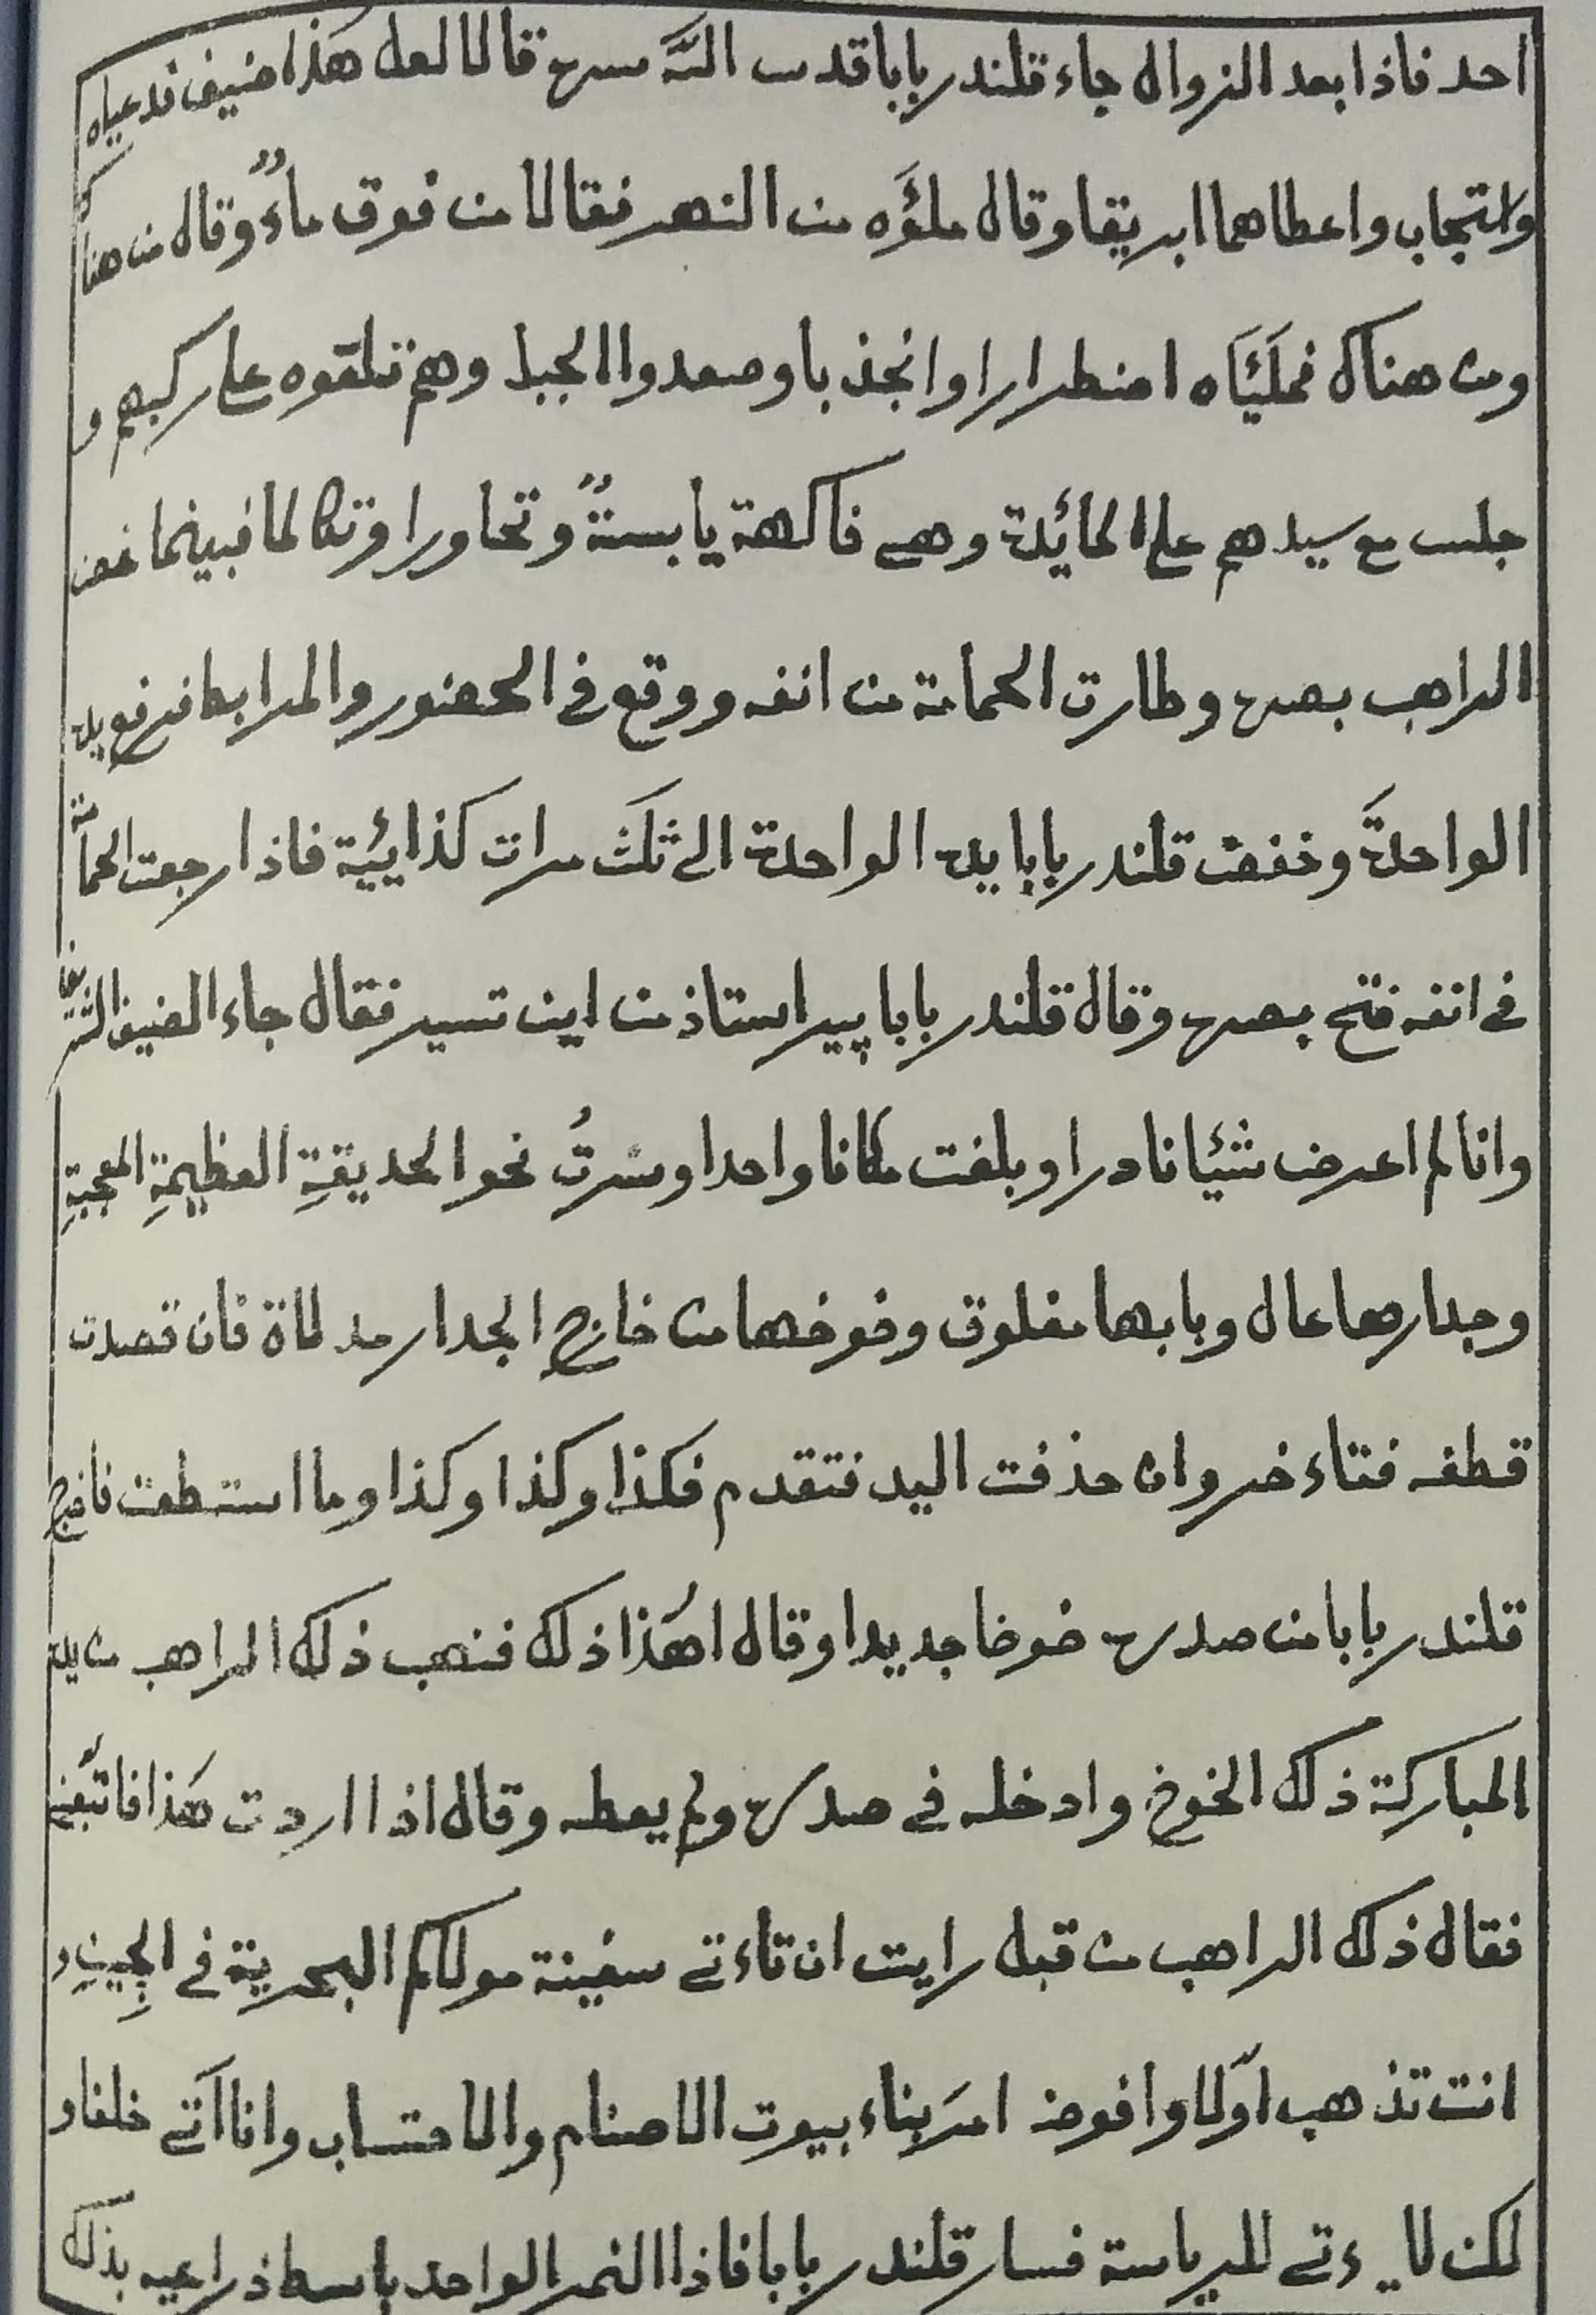 احد فاذا بعد الزوال جاء قلندر بابا قدس اللّه سره قالا لعل هٰذا ضيف فدعياه
واستجاب واعطاهما ابريقا وقال ملؤه من النهر فقالا من فوق ماءٌ وقال من هنا
ومن هناك فملَئَاه اضطرارا وانجذبا وصعدوا الجبل وهم تلقوه على ركبهم و
جلس مع سيدهم على المائدة وهى فاكهة يابسةٌ وتحاورا وتكالما فبينما غض
الراهب بصره وطارت الحمامة من انفه ووقع فى الحضور والمرابط فرفع يده
الواحدةَ وخفض قلندر بابا يده الواحدة الى ثلث مرات كذايية فاذا رجعت الحمامة
فى انفه فتح بصره وقال قلندر بابا پير استاذ من اين تسير فقال جاء الضيف الشريف
وانا لم اعرض شئيا نادرا وبلغت مكانا واحدا وسرتُ نحو الحديقةِ العظيمةِ العجيبةِ
وجدارها عال وبابها مغلوق وخوخها من خارج الجدار مدلاة فان قصدت
قطفه فتاءخر وان حذفت اليد فتقدم فكذا وكذا وكذا وما استطعت فاخرج
قلندر بابا من صدره خوخا جديدا وقال اهٰذا ذلك فنهب ذلك الراهب من يده
المباركة ذلك الخوخ وادخله فى صدره ولم يعطه وقال اذا اردت هٰذا فاتّبعنى
فقال ذلك الراهب من قبل رايت ان تاءتى سفينة مولاكم البحرية فى الجيبِ و
انت تذهب اوّلا وافوض امرَ بناء بيوت الاصنام والاحتساب وانا اٰتى خلفا و
لكن لا يءتى للرياسة فسار قلندر بابا فاذا النمر الواحد باسط ذراعيه بذلك